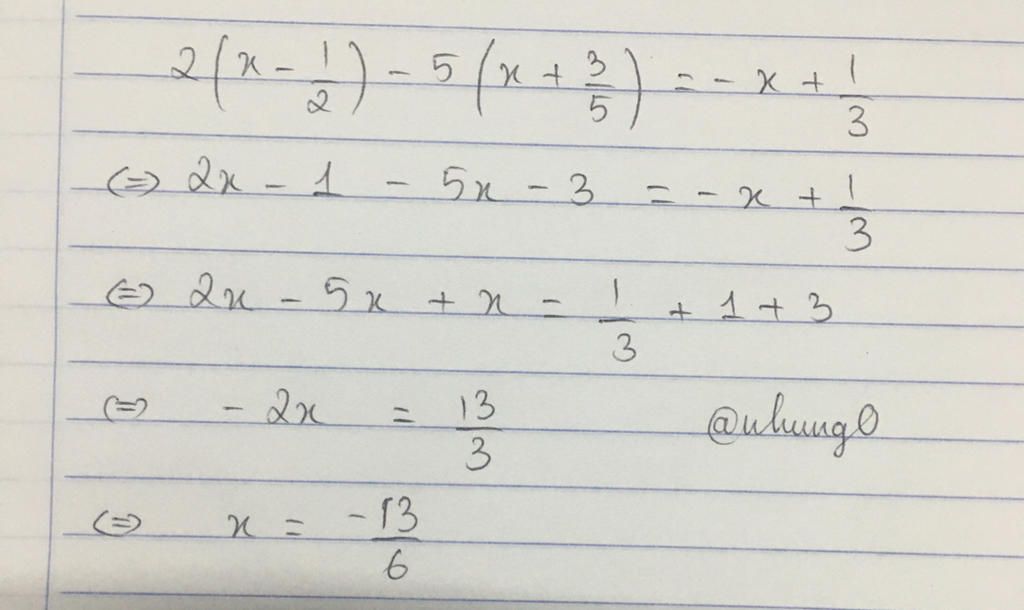 2(x - 1/2) - 5(x + 3/5) = - x + 1/3
⇔ 2x - 1 - 5x - 3 = - x + 1/3
⇔ 2x - 5x + x = 1/3 + 1 + 3
⇔ - 2x = 13/3 @nhung0
⇔ x = -13/6